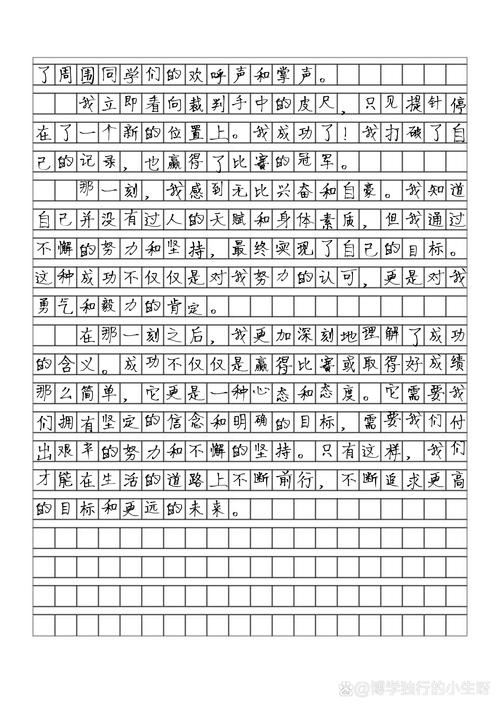 了周围同学们的欢呼声和掌声。
我立即看向裁判手中的皮尺，只见提针停
在了一个新的位置上。我成功了！我打破了自
己的记录，也赢得了比赛的冠军。
那一刻，我感到无比兴奋和自豪。我知道
自己并没有过人的天赋和身体素质，但我通过
不懈的努力和坚持，最终实现了自己的目标。
这种成功不仅仅是对我努力的认可，更是对我
勇气和毅力的肯定。
在那一刻之后，我更加深刻地理解了成功
的含义。成功不仅仅是赢得比赛或取得好成绩
那么简单，它更是一种心态和态度。它需要我
们拥有坚定的信念和明确的目标，需要我们付
出艰辛的努力和不懈的坚持。只有这样，我们
才能在生活的道路上不断前行，不断追求更高
的目标和更远的未来。
@博学独行的小生呀